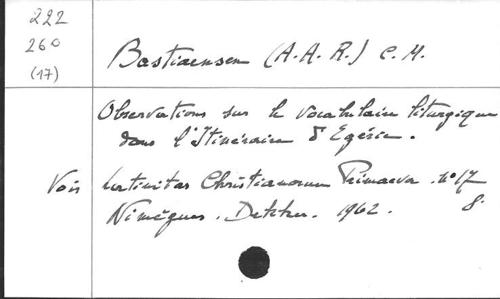 222
260
(17)
Bastiaensen (A.A.R.) C.M.
Observations sur le vocabulaire liturgique
dans l'Itinéraire d'Egérie.
Vois Latinitas Christianorum Primaeva. n° 17
Nimègues. Dekker. 1962. 8.